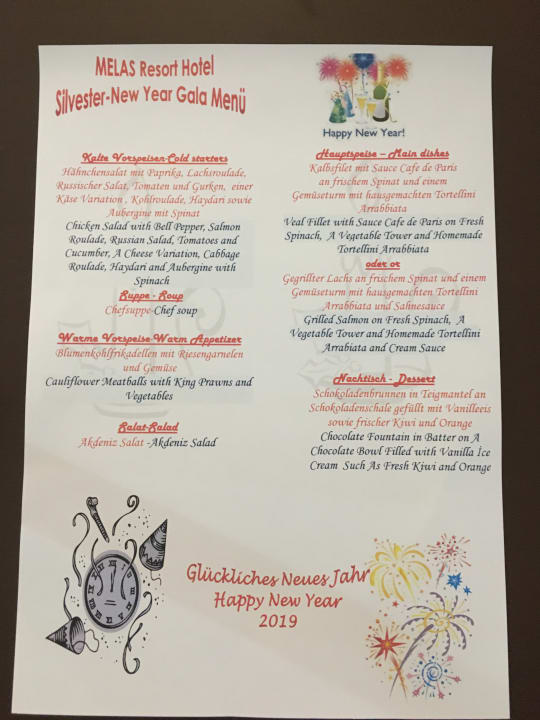 MELAS Resort Hotel
Silvester-New Year Gala Menü
Happy New Year!
Kalte Vorspeisen-Cold starters
Hähnchensalat mit Paprika, Lachsroulade,
Russischer Salat, Tomaten und Gurken, einer
Käse Variation , Kohlroulade, Haydari sowie
Aubergine mit Spinat
Chicken Salad with Bell Pepper, Salmon
Roulade, Russian Salad, Tomatoes and
Cucumber, A Cheese Variation, Cabbage
Roulade, Haydari and Aubergine with
Spinach
Suppe - Soup
Chefsuppe-Chef soup
Warme Vorspeise-Warm Appetizer
Blumenkohlfrikadellen mit Riesengarnelen
und Gemüse
Cauliflower Meatballs with King Prawns and
Vegetables
Salat-Salad
Akdeniz Salat -Akdeniz Salad
Hauptspeise – Main dishes
Kalbsfilet mit Sauce Cafe de Paris
an frischem Spinat und einem
Gemüseturm mit hausgemachten Tortellini
Arrabbiata
Veal Fillet with Sauce Cafe de Paris on Fresh
Spinach, A Vegetable Tower and Homemade
Tortellini Arrabbiata
oder or
Gegrillter Lachs an frischem Spinat und einem
Gemüseturm mit hausgemachten Tortellini
Arrabbiata und Sahnesauce
Grilled Salmon on Fresh Spinach, A
Vegetable Tower and Homemade Tortellini
Arrabiata and Cream Sauce
Nachtisch - Dessert
Schokoladenbrunnen in Teigmantel an
Schokoladenschale gefüllt mit Vanilleeis
sowie frischer Kiwi und Orange
Chocolate Fountain in Batter on A
Chocolate Bowl Filled with Vanilla İce
Cream Such As Fresh Kiwi and Orange
Glückliches Neues Jahr
Happy New Year
2019